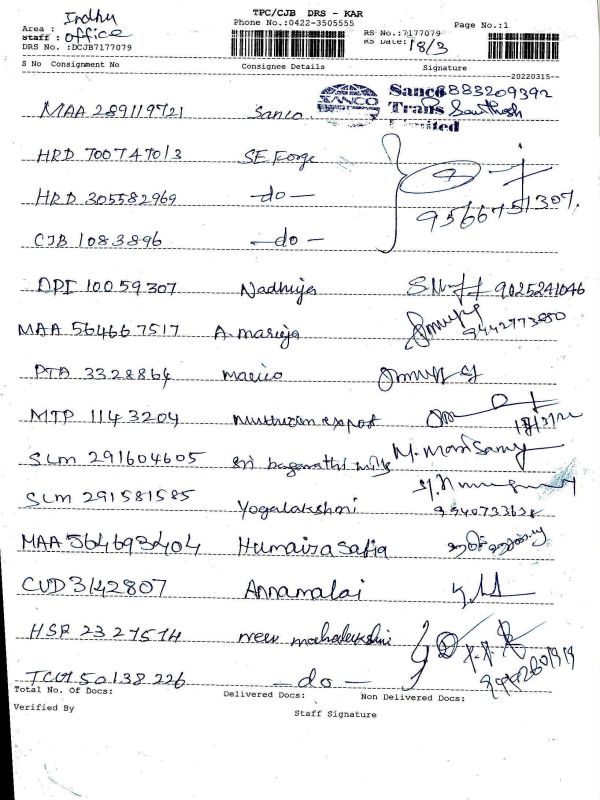 TPC/CJB DRS - KAR
Phone No.:0422-3505555
Page No.:1
Area : Indhu
Staff : office
DRS No. :DCJB7177079
RS No.:7177079
RS Date: 18/3
S No Consignment No Consignee Details Signature
20220315
MAA 289119721 Sanco SANCO Sanco Trans Limited 8883209392 Santhosh
HRD 700747013 SE Forge
HRD 305582969 -do- 9566751307
CJB 1083896 -do-
DPI 10059307 Nadhiya 9025241046
MAA 564667517 A. mariya 9442773080
PTA 3328864 marico
MTP 1143204 export 18/3/22
SLM 291604605 Sri baganathi mills M. Manisamy
SLM 291581585 Yogalakshmi
MAA 564693404 Humaira Safia
CUD 3142807 Annamalai
HSR 2327574 meer mahalakshmi
TCM 50138226 -do-
Total No. Of Docs: Delivered Docs: Non Delivered Docs:
Verified By
Staff Signature